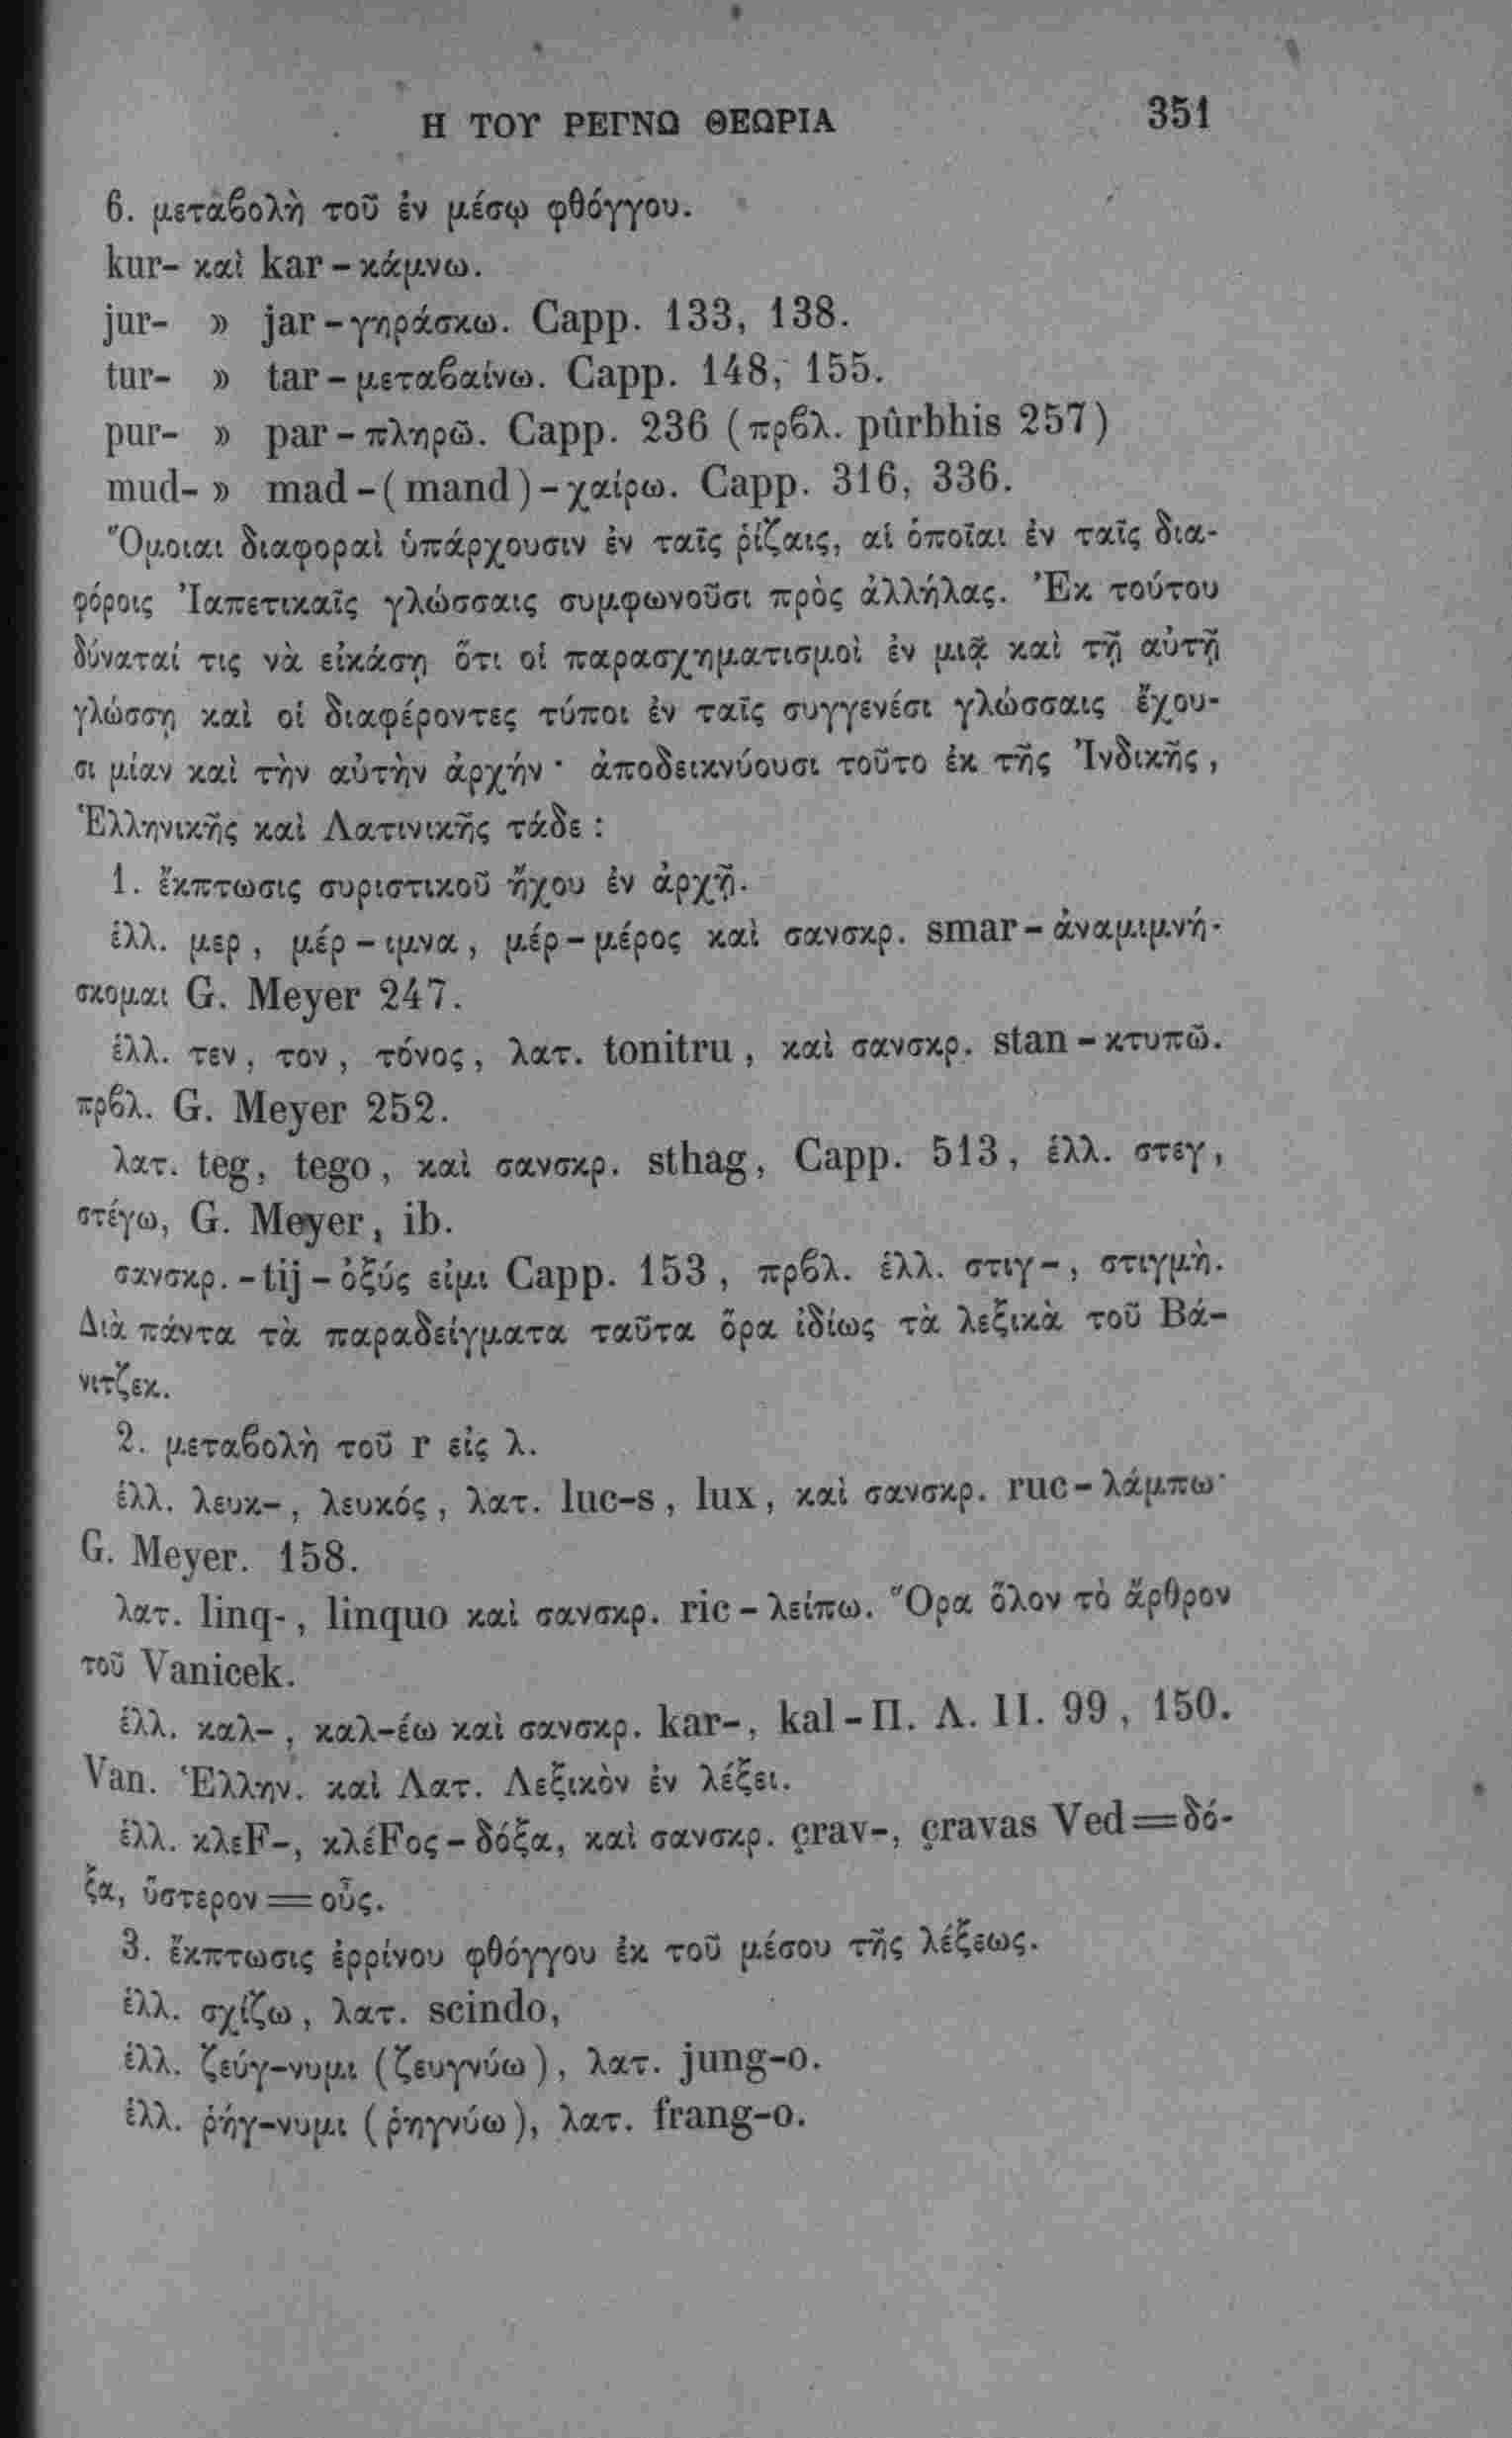 Η ΤΟΥ ΡΕΓΝΩ ΘΕΩΡΙΑ 351
6. μεταϐολὴ τοῦ ἐν μέσῳ φθόγγου.
kur- καὶ kar - κάμνω.
jur- » jar - γηράσκω. Capp. 133, 138.
tur- » tar - μεταϐαίνω. Capp. 148, 155.
pur- » par - πληρῶ. Capp. 236 (πρϐλ. pûrbhis 257)
mud- » mad - ( mand ) - χαίρω. Capp. 316, 336.
Ὅμοιαι διαφοραὶ ὑπάρχουσιν ἐν ταῖς ῥίζαις, αἱ ὁποῖαι ἐν ταῖς δια-
φόροις Ἰαπετικαῖς γλώσσαις συμφωνοῦσι πρὸς ἀλλήλας. Ἐκ τούτου
δύναταί τις νὰ εἰκάσῃ ὅτι οἱ παρασχηματισμοὶ ἐν μιᾷ καὶ τῇ αὐτῇ
γλώσσῃ καὶ οἱ διαφέροντες τύποι ἐν ταῖς συγγενέσι γλώσσαις ἔχου-
σι μίαν καὶ τὴν αὐτὴν ἀρχήν · ἀποδεικνύουσι τοῦτο ἐκ τῆς Ἰνδικῆς,
Ἑλληνικῆς καὶ Λατινικῆς τάδε :
1. ἔκπτωσις συριστικοῦ ἤχου ἐν ἀρχῇ.
ἑλλ. μερ, μέρ - ιμνα, μέρ - μέρος καὶ σανσκρ. smar - ἀναμιμνή-
σκομαι G. Meyer 247.
ἑλλ. τεν, τον, τόνος, λατ. tonitru, καὶ σανσκρ. stan - κτυπῶ.
πρϐλ. G. Meyer 252.
λατ. teg, tego, καὶ σανσκρ. sthag, Capp. 513, ἑλλ. στεγ,
στέγω, G. Meyer, ib.
σανσκρ. - tij - ὀξύς εἰμι Capp. 153, πρϐλ. ἑλλ. στιγ-, στιγμὴ.
Διὰ πάντα τὰ παραδείγματα ταῦτα ὅρα ἰδίως τὰ λεξικὰ τοῦ Βά-
νιτζεκ.
2. μεταϐολὴ τοῦ r εἰς λ.
ἑλλ. λευκ-, λευκός, λατ. luc-s, lux, καὶ σανσκρ. ruc - λάμπω·
G. Meyer. 158.
λατ. linq-, linquo καὶ σανσκρ. ric - λείπω. Ὅρα ὅλον τὸ ἄρθρον
τοῦ Vanicek.
ἑλλ. καλ-, καλ-έω καὶ σανσκρ. kar-, kal - Π. Λ. II. 99, 150.
Van. Ἑλλην. καὶ Λατ. Λεξικὸν ἐν λέξει.
ἑλλ. κλεF-, κλέFος - δόξα, καὶ σανσκρ. çrav-, çravas Ved = δό-
ξα, ὕστερον = οὖς.
3. ἔκπτωσις ἐρρίνου φθόγγου ἐκ τοῦ μέσου τῆς λέξεως.
ἑλλ. σχίζω, λατ. scindo,
ἑλλ. ζεύγ-νυμι (ζευγνύω), λατ. jung-o.
ἑλλ. ῥήγ-νυμι (ῥηγνύω), λατ. frang-o.